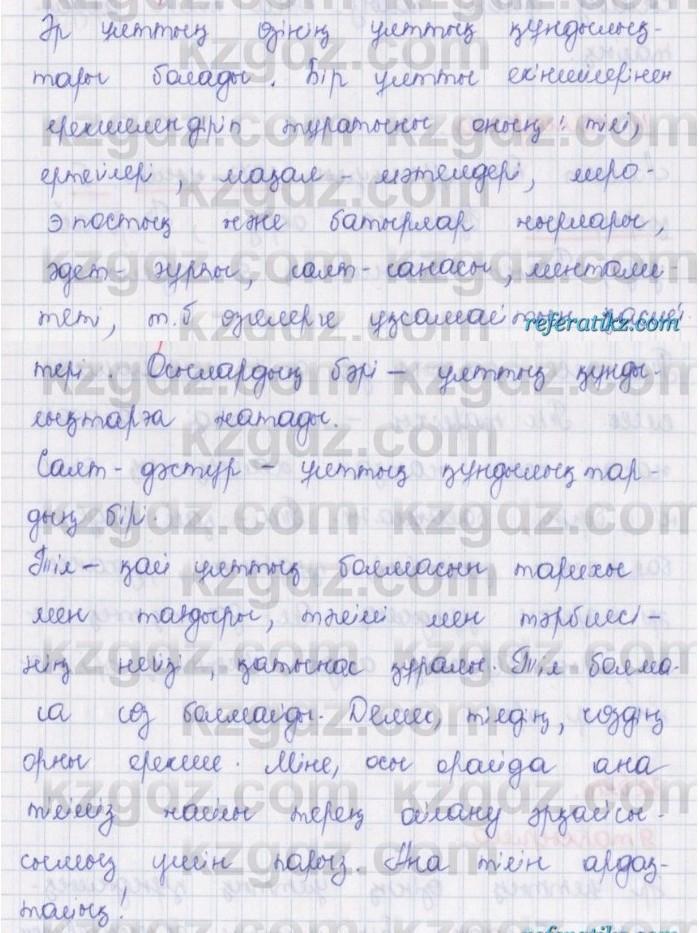 Әр ұлттың өзінің ұлттық құндылық-
тары болады. Бір ұлтты екіншілерінен
ерекшелендіріп тұратыны оның: тілі,
ертегілері, мақал - мәтелдері,
эпостық және батырлар жырлары,
әдет-ғұрпы, салт-санасы, ментали-
теті, т.б өзгелерге ұқсамайтын қасиет
тері. Осылардың бәрі – ұлттық құнды-
лықтарға жатады.
Салт-дәстүр – ұлттық құндылықтар-
дың бірі.
Тіл – қай ұлттың болмасын тарихы
мен тағдыры, тәлімі мен тәрбиесі-
нің негізі, қатынас құралы. Тіл болма-
са сөз болмайды. Демек, тілдің, сөздің
орны ерекше. Міне, осы орайда ана
тіліміз жайлы терең ойлану әрқайсы-
сымыз үшін парыз. Ана тілін ардақ-
тайық!
kzgdz.com
referatikz.com